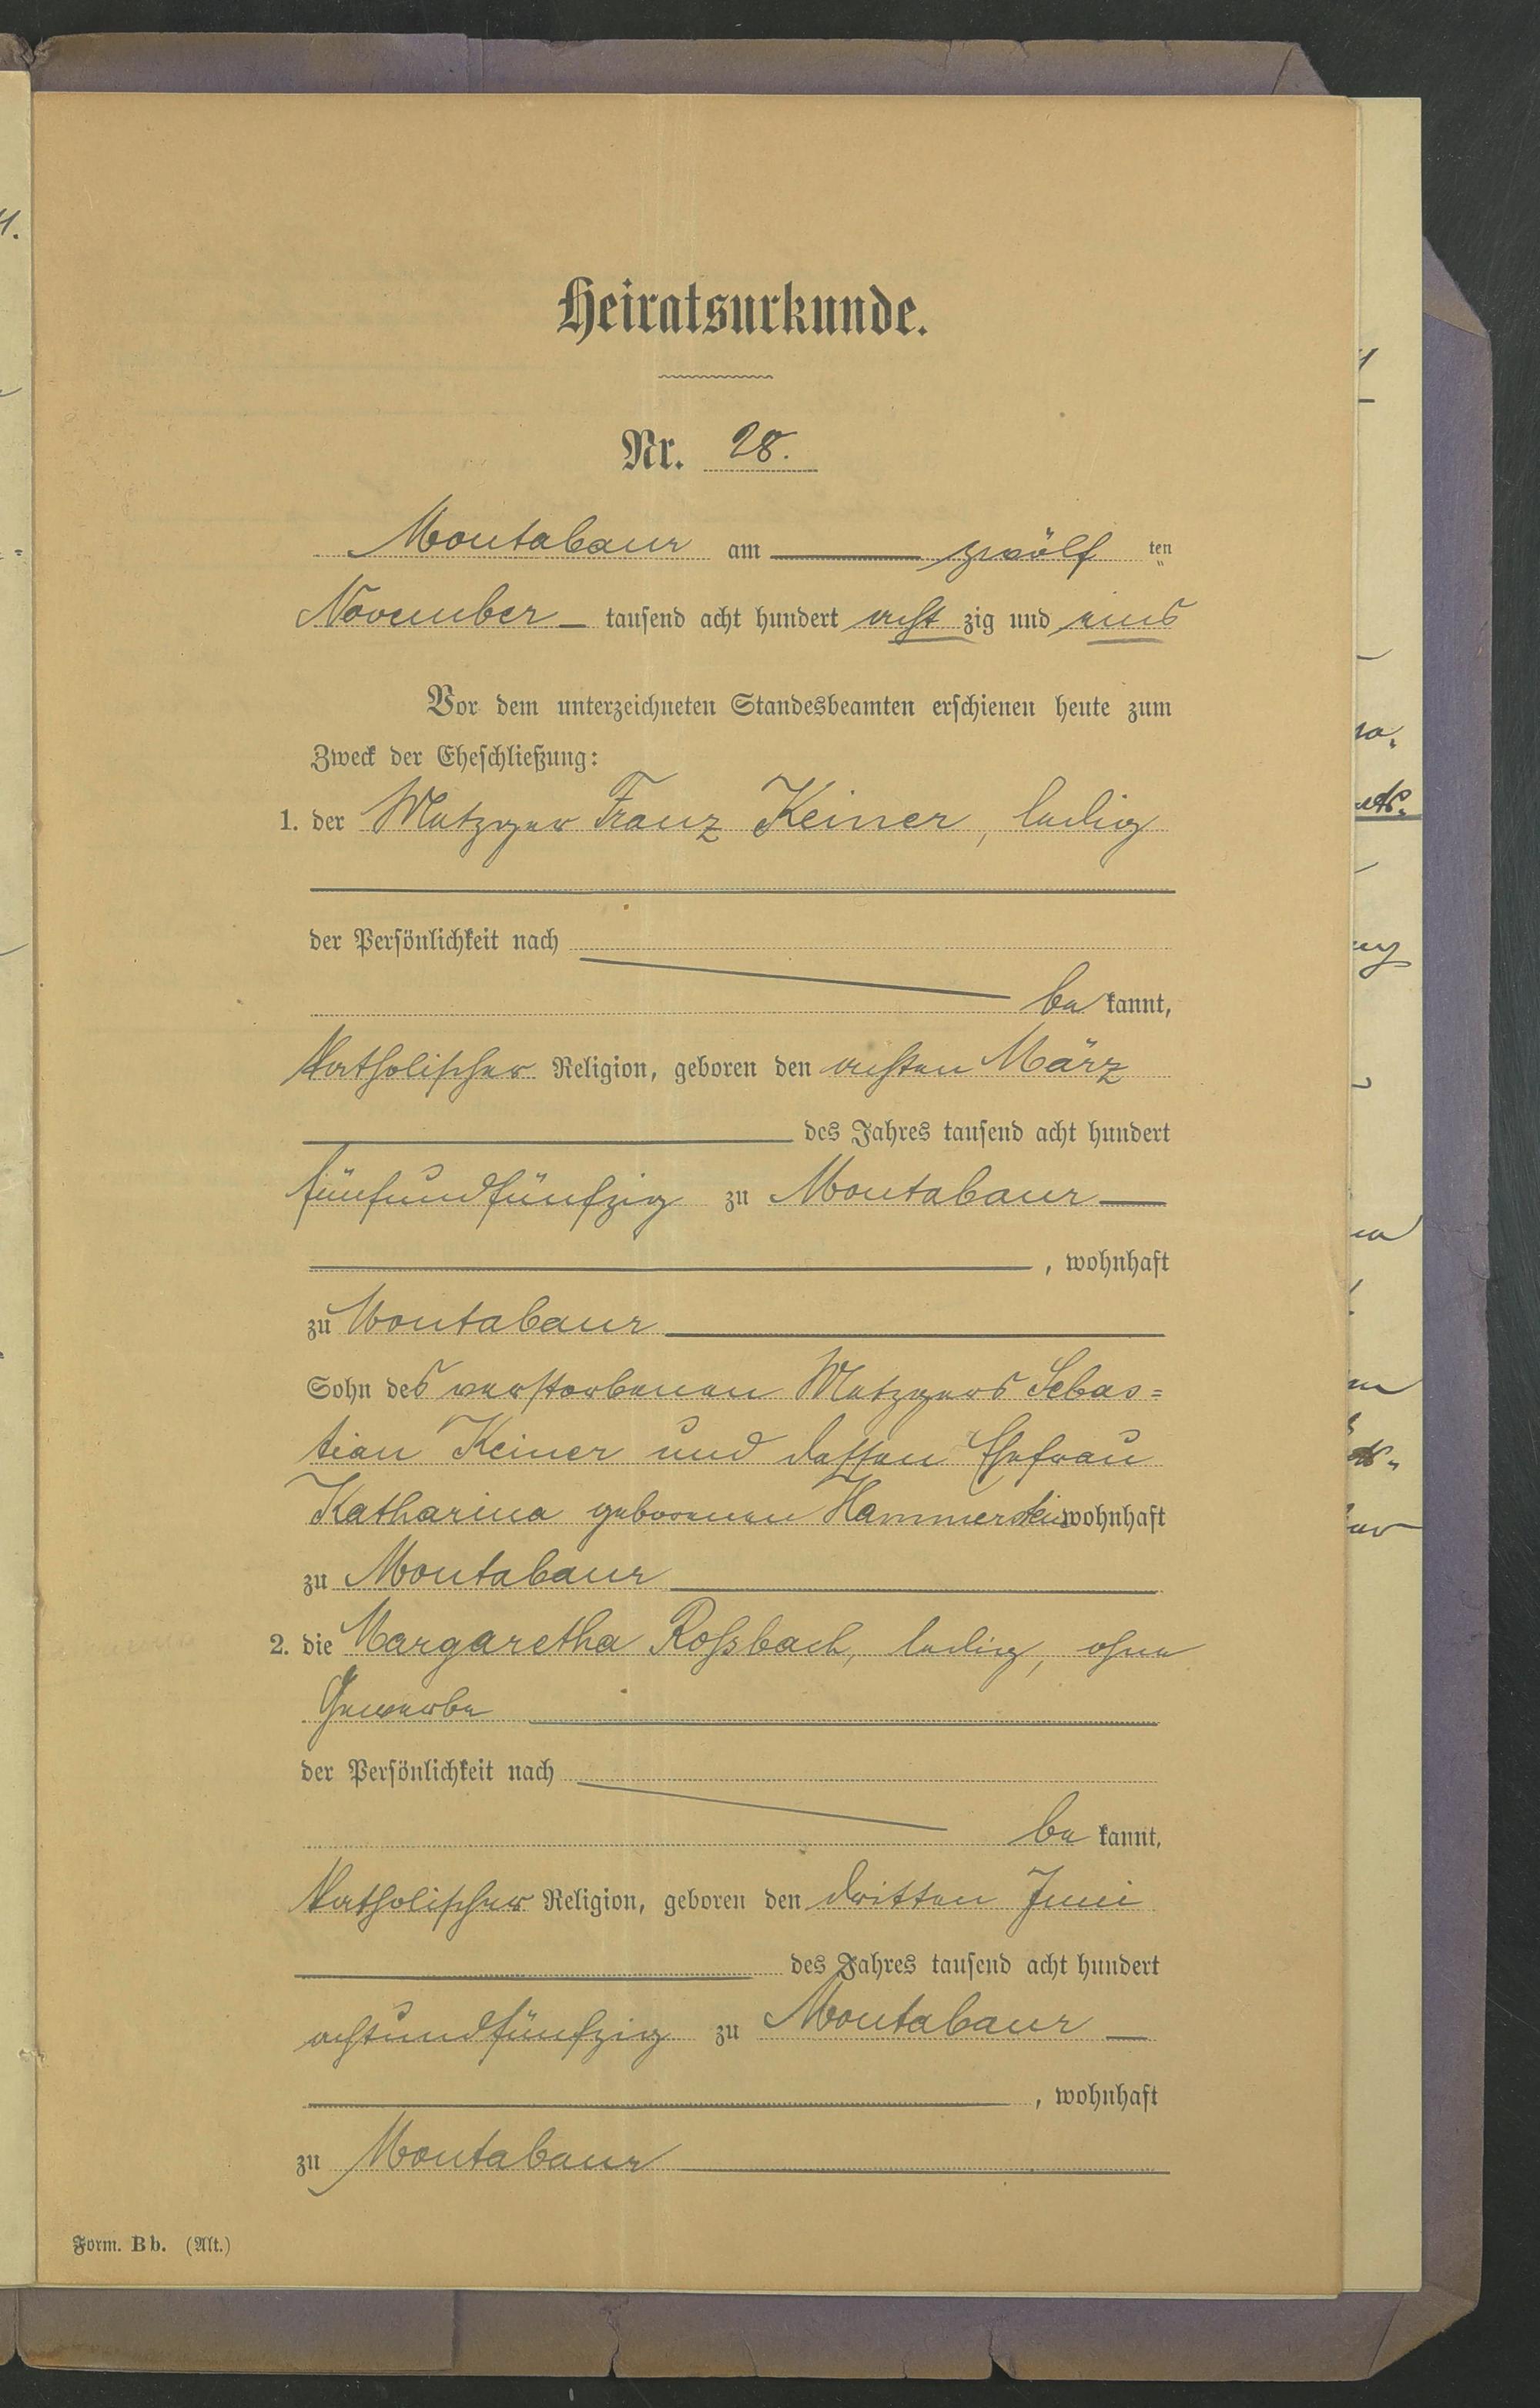 Heiratsurkunde.
Nr. 28.
Montabaur am zwölf ten
November tausend acht hundert acht zig und eins
Vor dem unterzeichneten Standesbeamten erschienen heute zum
Zweck der Eheschließung:
1. der Metzger Franz Keiner, ledig
der Persönlichkeit nach
be kannt,
katholischer Religion, geboren den achten März
des Jahres tausend acht hundert
fünfundfünfzig zu Montabaur
, wohnhaft
zu Montabaur
Sohn des verstorbenen Metzgers Sebas=
tian Keiner und dessen Ehefrau
Katharina geborenen Hammerstein wohnhaft
zu Montabaur
2. die Margaretha Roßbach, ledig, ohne
Gewerbe
der Persönlichkeit nach
be kannt,
katholischer Religion, geboren den dritten Juni
des Jahres tausend acht hundert
achtundfünfzig zu Montabaur
, wohnhaft
zu Montabaur
Form. Bb. (Alt.)